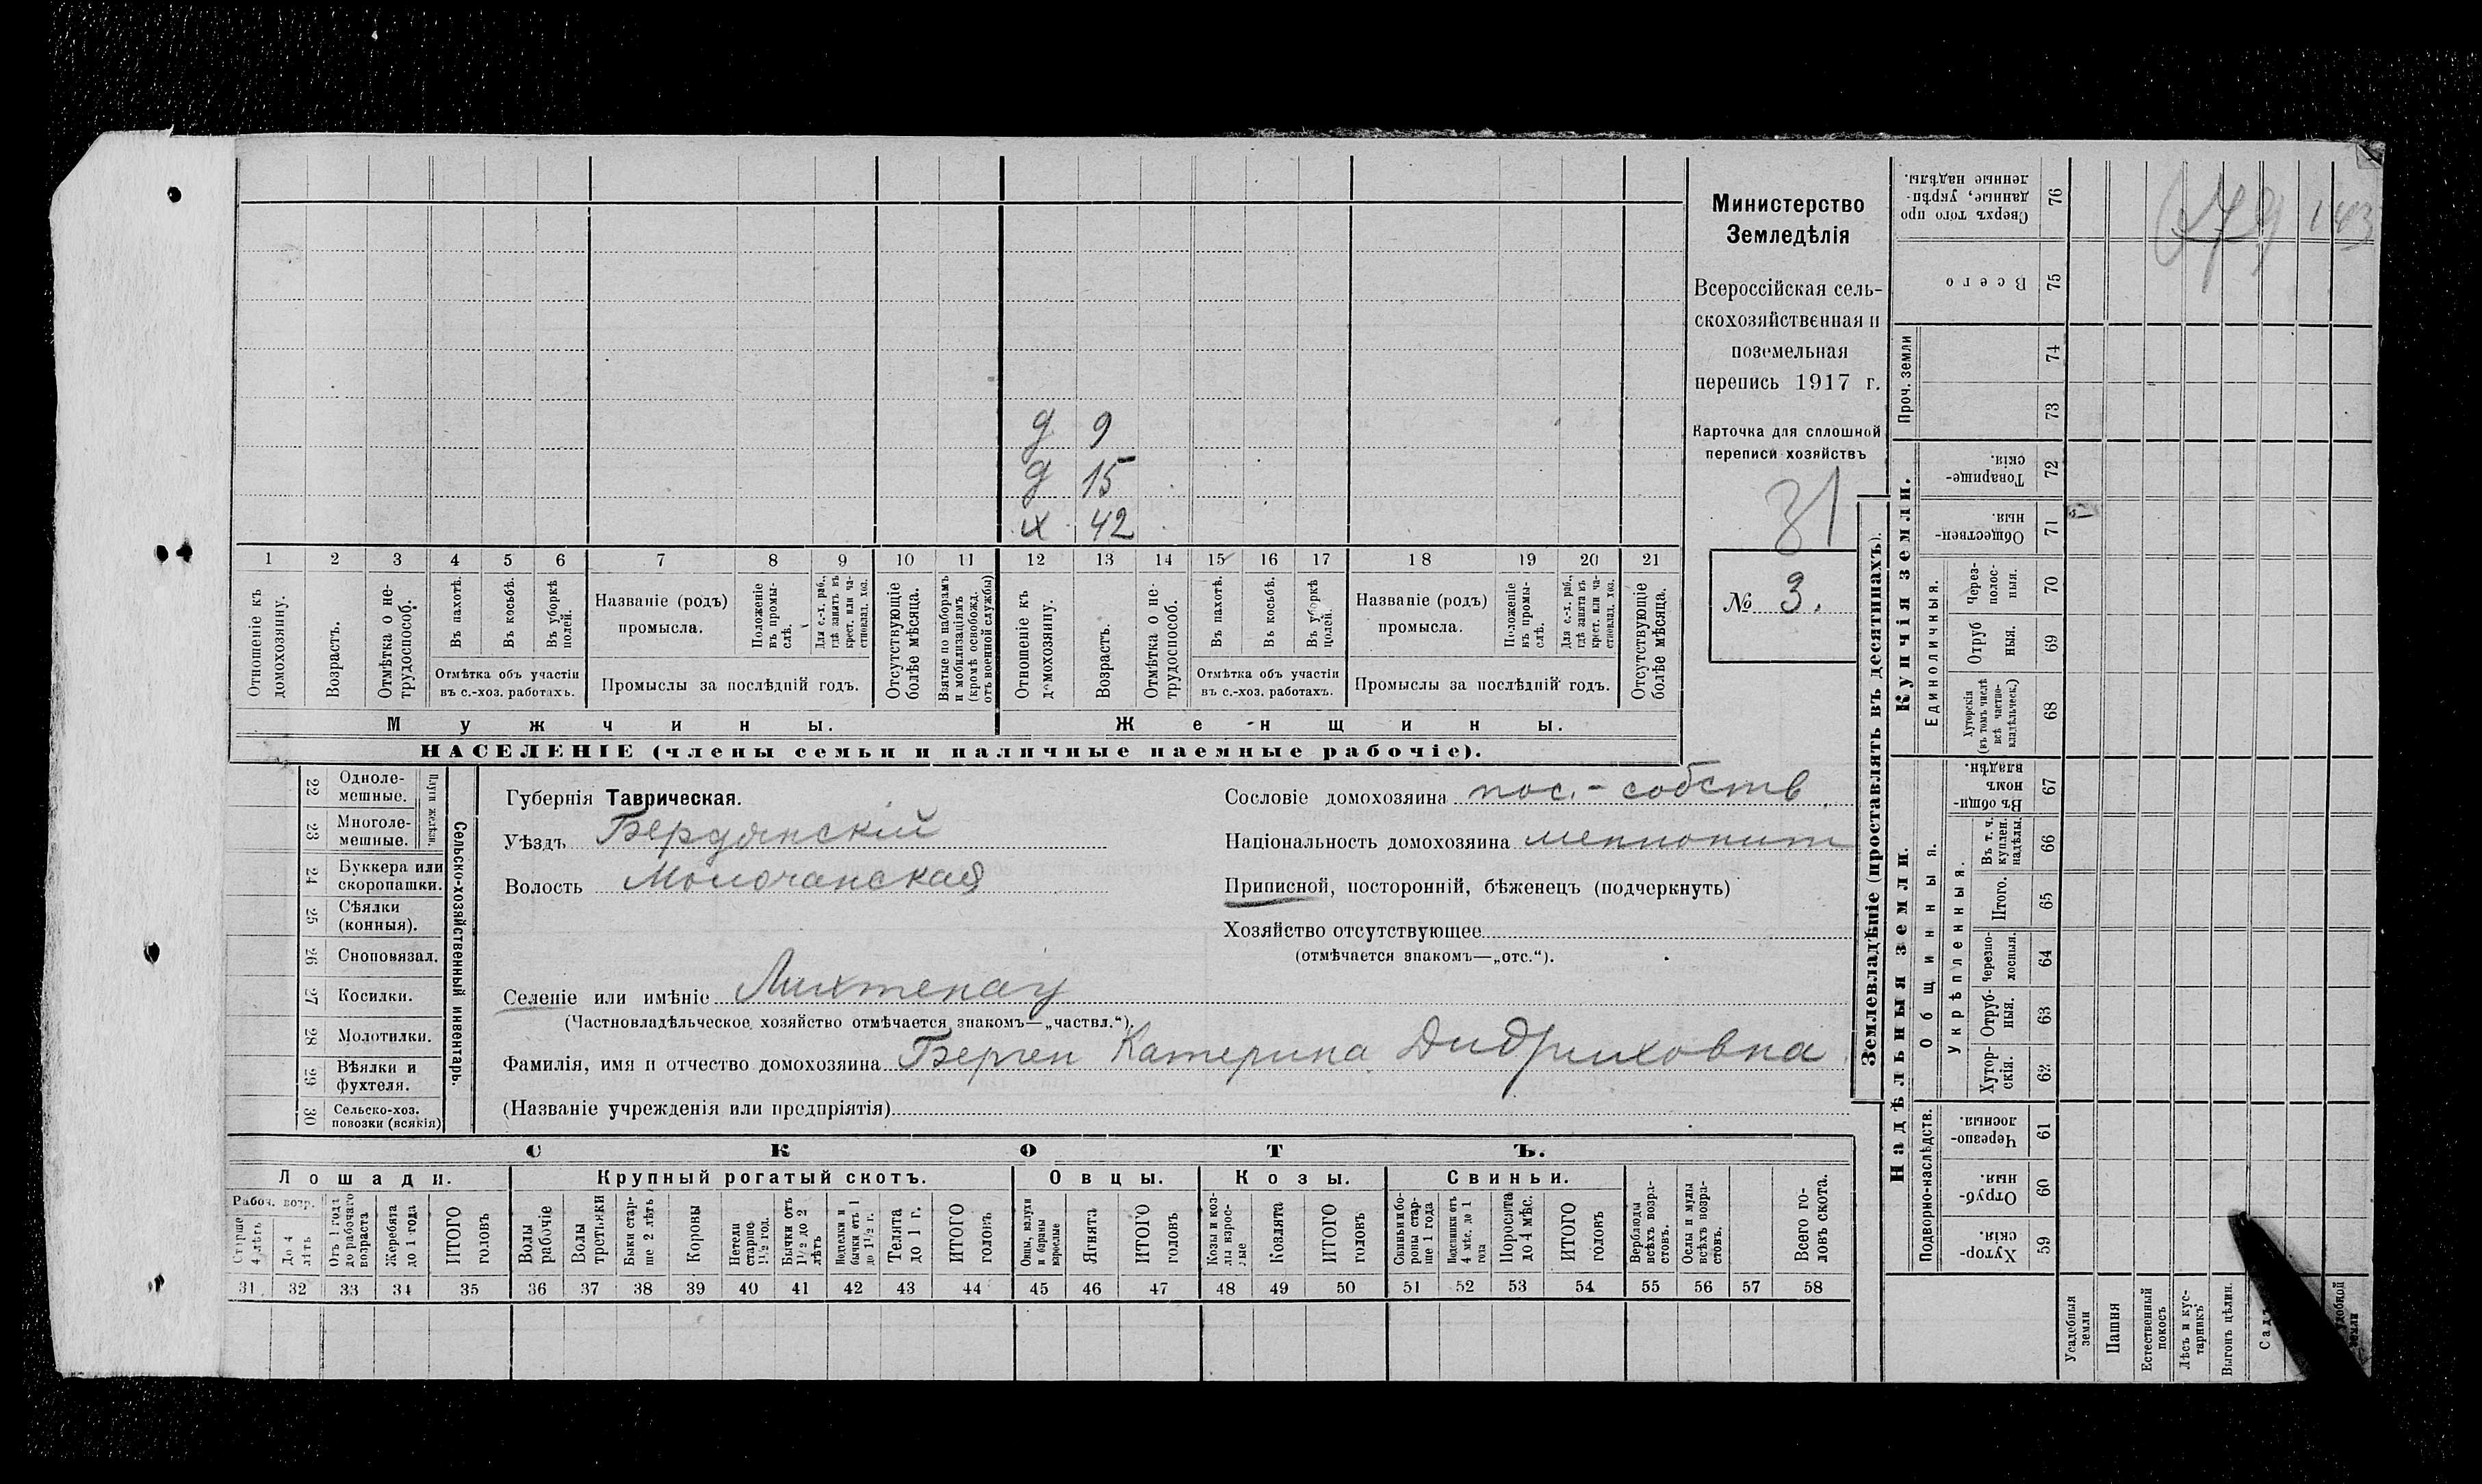 679 143
Министерство
Земледѣлія
Всероссійская сель-
скохозяйственная и
поземельная
перепись 1917 г.
Карточка для сплошной
переписи хозяйствъ
31
№ 3.
д 9
д 15
х 42
1 2 3 4 5 6 7 8 9 10 11 12 13 14 15 16 17 18 19 20 21
Отношеніе къ домохозяину.
Возрастъ.
Отмѣтка о не-трудоспособ.
Въ пахотѣ.
Въ косьбѣ.
Въ уборкѣ полей.
Отмѣтка объ участіи
въ с.-хоз. работахъ.
Названіе (родъ)
промысла.
Положеніе въ промы-слѣ.
Для с.-х. раб., гдѣ занятъ въ крест. или ча-стновлад. хоз.
Промыслы за послѣдній годъ.
Отсутствующіе болѣе мѣсяца.
Взятые по наборамъ и мобилизаціямъ (кромѣ освобожд. отъ военной службы)
Отношеніе къ домохозяину.
Возрастъ.
Отмѣтка о не-трудоспособ.
Въ пахотѣ.
Въ косьбѣ.
Въ уборкѣ полей.
Отмѣтка объ участіи
въ с.-хоз. работахъ.
Названіе (родъ)
промысла.
Положеніе въ промы-слѣ.
Для с.-х. раб., гдѣ занята въ крест. или ча-стновлад. хоз.
Промыслы за послѣдній годъ.
Отсутствующіе болѣе мѣсяца.
Мужчины. Женщины.
НАСЕЛЕНІЕ (члены семьи и наличные наемные рабочіе).
Сельско-хозяйственный инвентарь.
Плуги желѣзн.
22 Одноле-мешные.
23 Многоле-мешные.
24 Буккера или скоропашки.
25 Сѣялки (конныя).
26 Сноповязал.
27 Косилки.
28 Молотилки.
29 Вѣялки и фухтеля.
30 Сельско-хоз. повозки (всякія)
Губернія Таврическая.
Уѣздъ Бердянскій
Волость Молочанская
Селеніе или имѣніе Лихтенау
(Частновладѣльческое хозяйство отмѣчается знакомъ—„частвл.“).
Фамилія, имя и отчество домохозяина Берген Катерина Дидриховна
(Названіе учрежденія или предпріятія)
Сословіе домохозяина пос.-собств.
Національность домохозяина меннонит
Приписной, посторонній, бѣженецъ (подчеркнуть)
Хозяйство отсутствующее
(отмѣчается знакомъ—„отс.“).
СКОТЪ.
Лошади. Крупный рогатый скотъ. Овцы. Козы. Свиньи.
Рабоч. возр.
Старше 4 лѣтъ
До 4 лѣтъ
Отъ 1 года до рабочаго возраста
Жеребята до 1 года
ИТОГО головъ
Волы рабочіе
Волы третьяки
Быки стар-ше 2 лѣтъ
Коровы
Нетели старше 1½ год.
Бычки отъ 1½ до 2 лѣтъ
Подтелки и бычки отъ 1 до 1½ г.
Телята до 1 г.
ИТОГО головъ
Овцы, валухи и бараны взрослые
Ягнята
ИТОГО головъ
Козы и коз-лы взрос-лые
Козлята
ИТОГО головъ
Свиньи и бо-ровы стар-ше 1 года
Подсвинки отъ 4 мѣс. до 1 года
Поросята до 4 мѣс.
ИТОГО головъ
Верблюды всѣхъ возра-стовъ.
Ослы и мулы всѣхъ возра-стовъ.
Всего го-ловъ скота.
31 32 33 34 35 36 37 38 39 40 41 42 43 44 45 46 47 48 49 50 51 52 53 54 55 56 57 58
Землевладѣніе (проставлять въ десятинахъ).
Надѣльныя земли.
Подворно-наслѣдств.
Хутор-скія. 59
Отруб-ныя. 60
Черезпо-лосныя. 61
Общинныя.
Укрѣпленныя.
Хутор-скія. 62
Отруб-ныя. 63
Черезпо-лосныя. 64
Итого. 65
Въ т. ч. куплен. надѣлы. 66
Въ общин-номъ владѣн. 67
Купчія земли.
Единоличныя.
Хуторскія (въ томъ числѣ всѣ частно-владѣльческ.) 68
Отруб ныя. 69
Через-полос-ныя. 70
Обществен-ныя. 71
Товарище-скія. 72
Проч. земли
73
74
Всего 75
Сверхъ того про данные, укрѣп-ленные надѣлы. 76
Усадебныя земли
Пашня
Естественный покосъ
Лѣсъ и кус-тарникъ
Выгонъ цѣлин.